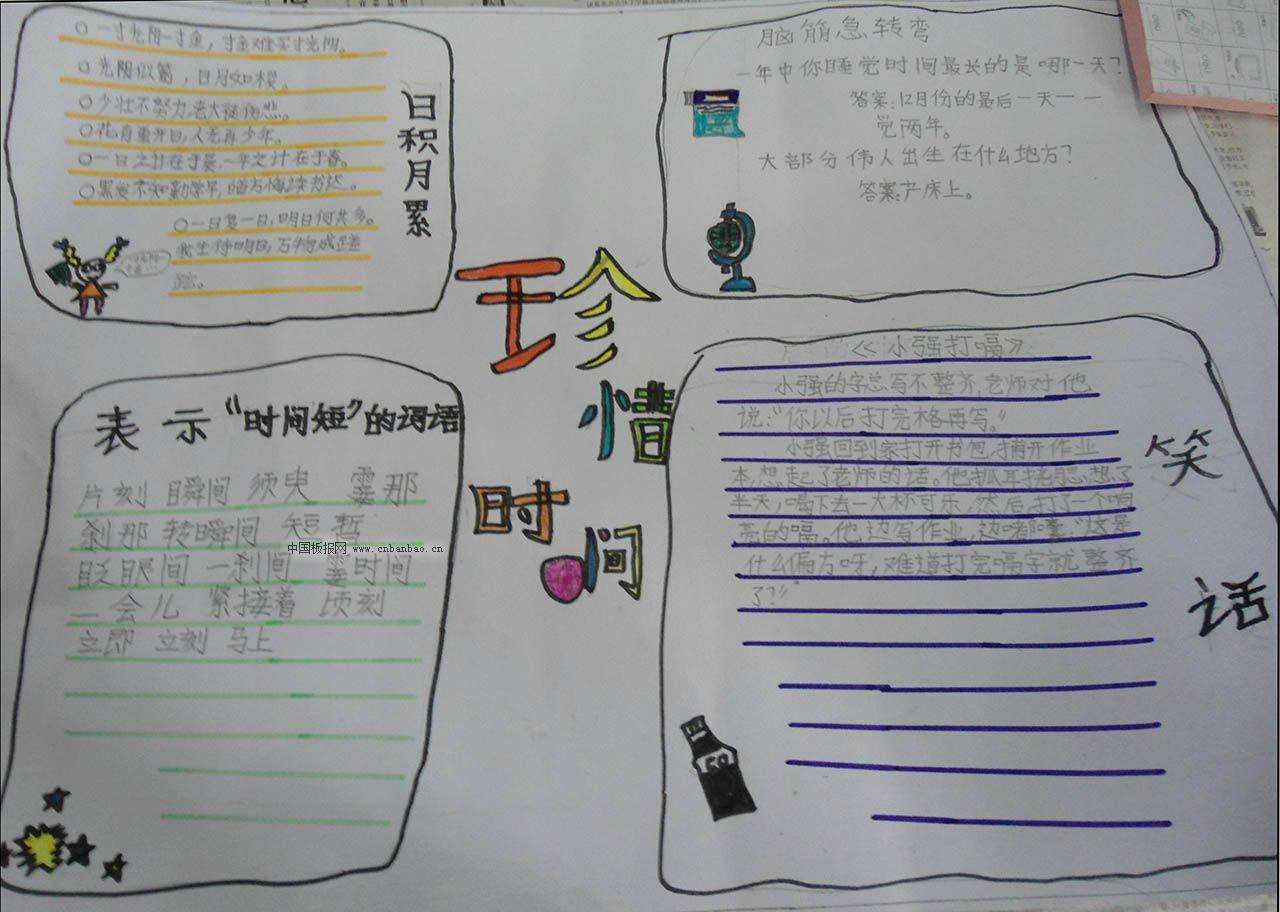 ○一寸光阴一寸金，寸金难买寸光阴。
○光阴似箭，日月如梭。
○少壮不努力,老大徒伤悲。
○花有重开日,人无再少年。
○一日之计在于晨,一年之计在于春。
○黑发不知勤学早,
○一日复一日,明日何其多。
我生待明日,万事成蹉
跎。
日积月累
脑筋急转弯
一年中你睡觉时间最长的是哪一天？
答案:12月份的最后一天一
觉两年。
大部分伟人出生在什么地方？
答案:产床上。
珍
惜
时
间
表示“时间短”的词语
片刻 瞬间 须臾 霎那
刹那 转瞬间 短暂
眨眼间 一刹间 霎时间
一会儿 紧接着 顷刻
立即 立刻 马上
中国板报网 www.cnbanbao.cn
《小强打嗝》
小强的字总写不整齐,老师对他
说:“你以后打完格再写。”
小强回到家打开书包,铺开作业
本,想起了老师的话。他抓耳挠腮想了
半天,喝下去一大杯可乐,然后打了一个响
亮的嗝。他边写作业,边嘟囔:“这是
什么偏方呀,难道打完嗝字就整齐
了?”
笑
话